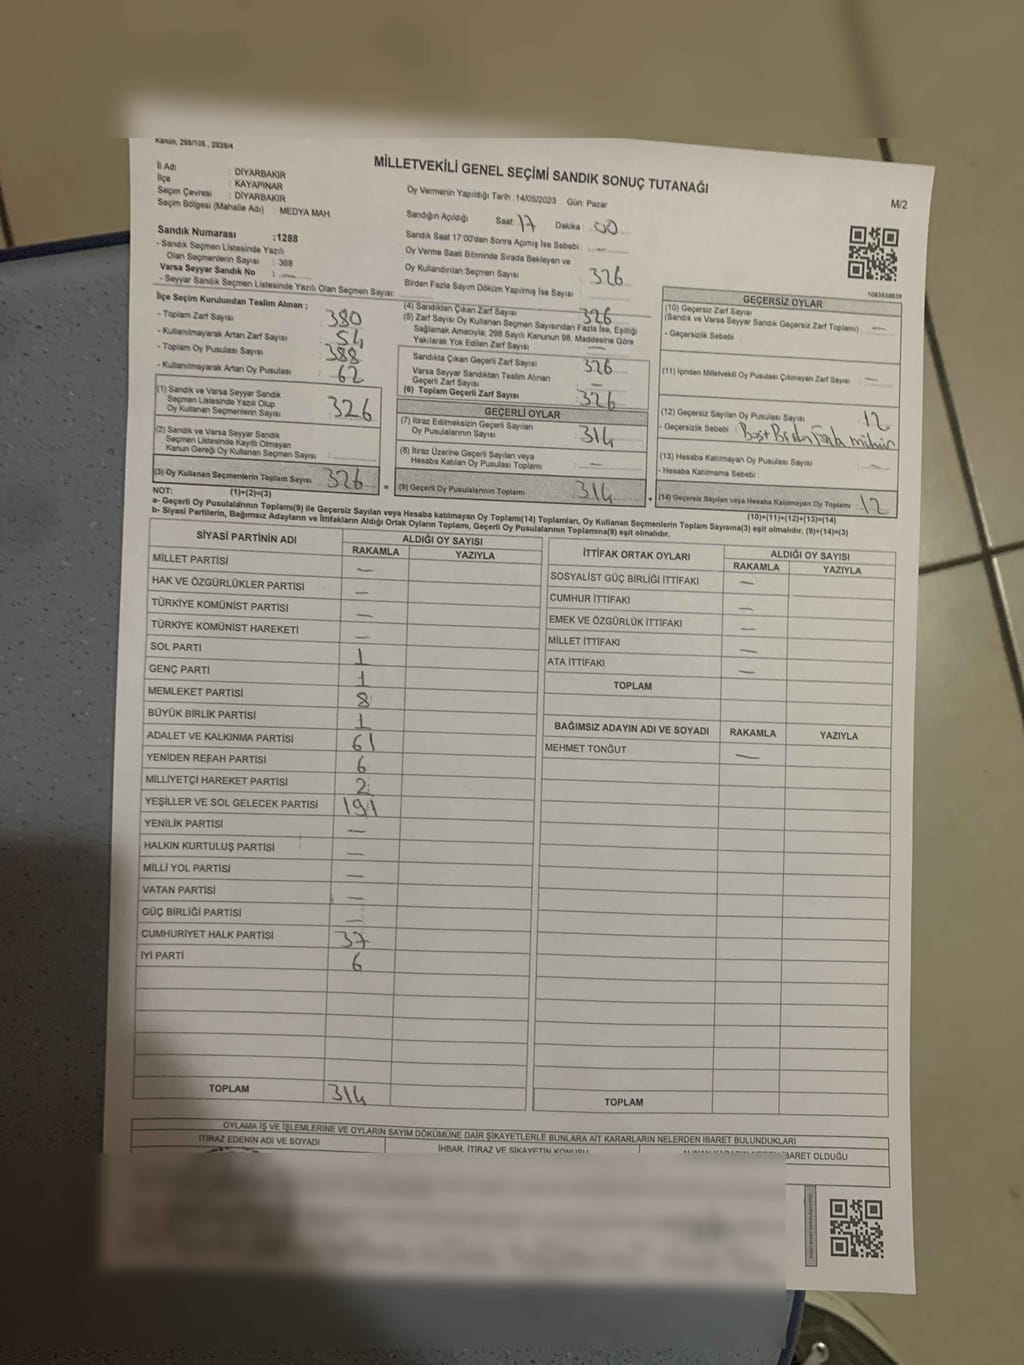 Kanun, 298/105 , 2839/4
MİLLETVEKİLİ GENEL SEÇİMİ SANDIK SONUÇ TUTANAĞI
M/2
İl Adı : DİYARBAKIR
İlçe : KAYAPINAR
Seçim Çevresi : DİYARBAKIR
Seçim Bölgesi (Mahalle Adı) : MEDYA MAH.
Sandık Numarası :1288
- Sandık Seçmen Listesinde Yazılı
Olan Seçmenlerin Sayısı : 368
Varsa Seyyar Sandık No : —
- Seyyar Sandık Seçmen Listesinde Yazılı Olan Seçmen Sayısı:
Oy Vermenin Yapıldığı Tarih :14/05/2023 Gün: Pazar
Sandığın Açıldığı Saat: 17 Dakika : 00
Sandık Saat 17:00'den Sonra Açımış İse Sebebi : —
Oy Verme Saati Bitiminde Sırada Bekleyen ve
Oy Kullandırılan Seçmen Sayısı : 326
Birden Fazla Sayım Döküm Yapılmış İse Sayısı : —
1083838839
İlçe Seçim Kurulundan Teslim Alınan :
- Toplam Zarf Sayısı : 380
- Kullanılmayarak Artan Zarf Sayısı : 54
- Toplam Oy Pusulası Sayısı : 388
- Kullanılmayarak Artan Oy Pusulası : 62
(1) Sandık ve Varsa Seyyar Sandık
Seçmen Listesinde Yazılı Olup
Oy Kullanan Seçmenlerin Sayısı : 326
(2) Sandık ve Varsa Seyyar Sandık
Seçmen Listesinde Kayıtlı Olmayan
Kanun Gereği Oy Kullanan Seçmen Sayısı :
(3) Oy Kullanan Seçmenlerin Toplam Sayısı : 326
(1)+(2)=(3)
(4) Sandıktan Çıkan Zarf Sayısı : 326
(5) Zarf Sayısı Oy Kullanan Seçmen Sayısından Fazla İse, Eşitliği
Sağlamak Amacıyla, 298 Sayılı Kanunun 98. Maddesine Göre
Yakılarak Yok Edilen Zarf Sayısı : —
Sandıkta Çıkan Geçerli Zarf Sayısı : 326
Varsa Seyyar Sandıktan Teslim Alınan
Geçerli Zarf Sayısı : —
(6) Toplam Geçerli Zarf Sayısı : 326
GEÇERLİ OYLAR
(7) İtiraz Edilmeksizin Geçerli Sayılan
Oy Pusulalarının Sayısı : 314
(8) İtiraz Üzerine Geçerli Sayılan veya
Hesaba Katılan Oy Pusulası Toplamı : —
= (9) Geçerli Oy Pusulalarının Toplamı : 314
GEÇERSİZ OYLAR
(10) Geçersiz Zarf Sayısı
(Sandık ve Varsa Seyyar Sandık Geçersiz Zarf Toplamı) : —
- Geçersizlik Sebebi :
(11) İçinden Milletvekili Oy Pusulası Çıkmayan Zarf Sayısı : —
(12) Geçersiz Sayılan Oy Pusulası Sayısı : 12
- Geçersizlik Sebebi : Boş+Birden Fazla mühür
(13) Hesaba Katılmayan Oy Pusulası Sayısı : —
- Hesaba Katılmama Sebebi :
+ (14) Geçersiz Sayılan veya Hesaba Katılmayan Oy Toplamı : 12
(10)+(11)+(12)+(13)=(14)
NOT:
a- Geçerli Oy Pusulalarının Toplamı(9) ile Geçersiz Sayılan veya Hesaba katılmayan Oy Toplamı(14) Toplamları, Oy Kullanan Seçmenlerin Toplam Sayısına(3) eşit olmalıdır. (9)+(14)=(3)
b- Siyasi Partilerin, Bağımsız Adayların ve İttifakların Aldığı Ortak Oyların Toplamı, Geçerli Oy Pusulalarının Toplamına(9) eşit olmalıdır.
SİYASİ PARTİNİN ADI
ALDIĞI OY SAYISI
RAKAMLA YAZIYLA
MİLLET PARTİSİ —
HAK VE ÖZGÜRLÜKLER PARTİSİ —
TÜRKİYE KOMÜNİST PARTİSİ —
TÜRKİYE KOMÜNİST HAREKETİ —
SOL PARTİ 1
GENÇ PARTİ 1
MEMLEKET PARTİSİ 8
BÜYÜK BİRLİK PARTİSİ 1
ADALET VE KALKINMA PARTİSİ 61
YENİDEN REFAH PARTİSİ 6
MİLLİYETÇİ HAREKET PARTİSİ 2
YEŞİLLER VE SOL GELECEK PARTİSİ 191
YENİLİK PARTİSİ —
HALKIN KURTULUŞ PARTİSİ —
MİLLİ YOL PARTİSİ —
VATAN PARTİSİ —
GÜÇ BİRLİĞİ PARTİSİ —
CUMHURİYET HALK PARTİSİ 37
İYİ PARTİ 6
TOPLAM 314
İTTİFAK ORTAK OYLARI
ALDIĞI OY SAYISI
RAKAMLA YAZIYLA
SOSYALİST GÜÇ BİRLİĞİ İTTİFAKI —
CUMHUR İTTİFAKI —
EMEK VE ÖZGÜRLÜK İTTİFAKI —
MİLLET İTTİFAKI —
ATA İTTİFAKI —
TOPLAM
BAĞIMSIZ ADAYIN ADI VE SOYADI RAKAMLA YAZIYLA
MEHMET TONĞUT —
TOPLAM
OYLAMA İŞ VE İŞLEMLERİNE VE OYLARIN SAYIM DÖKÜMÜNE DAİR ŞİKAYETLERLE BUNLARA AİT KARARLARIN NELERDEN İBARET BULUNDUKLARI
İTİRAZ EDENİN ADI VE SOYADI
İHBAR, İTİRAZ VE ŞİKAYETİN KONUSU
İBARET OLDUĞU